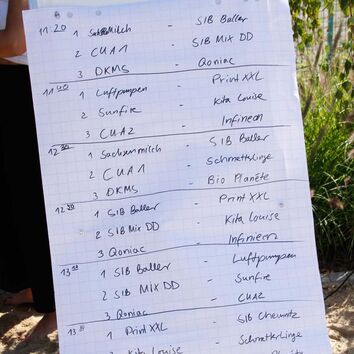 11:20 1 Milch - SIB Baller
2 CUA1 - SIB Mix DD
3 DKMS - Qoniac
11:40 1 Luftpumpen - Print XXL
2 Sunfire - Kita Louise
3 CUA2 - Infineon
1 Sachsenmilch - SIB Baller
2 CUA1 - Schmetterlinge
3 DKMS - Bio Planète
12 1 SIB Baller - Print XXL
2 SIB Mix DD - Kita Louise
3 Qoniac - Infinieon
13 1 SIB Baller - Luftpumpen
2 SIB MIX DD - Sunfire
3 Qoniac - CUA2
13 1 Print XXL - SIB Chemnitz
2 Kita Louise - Schmetterlinge